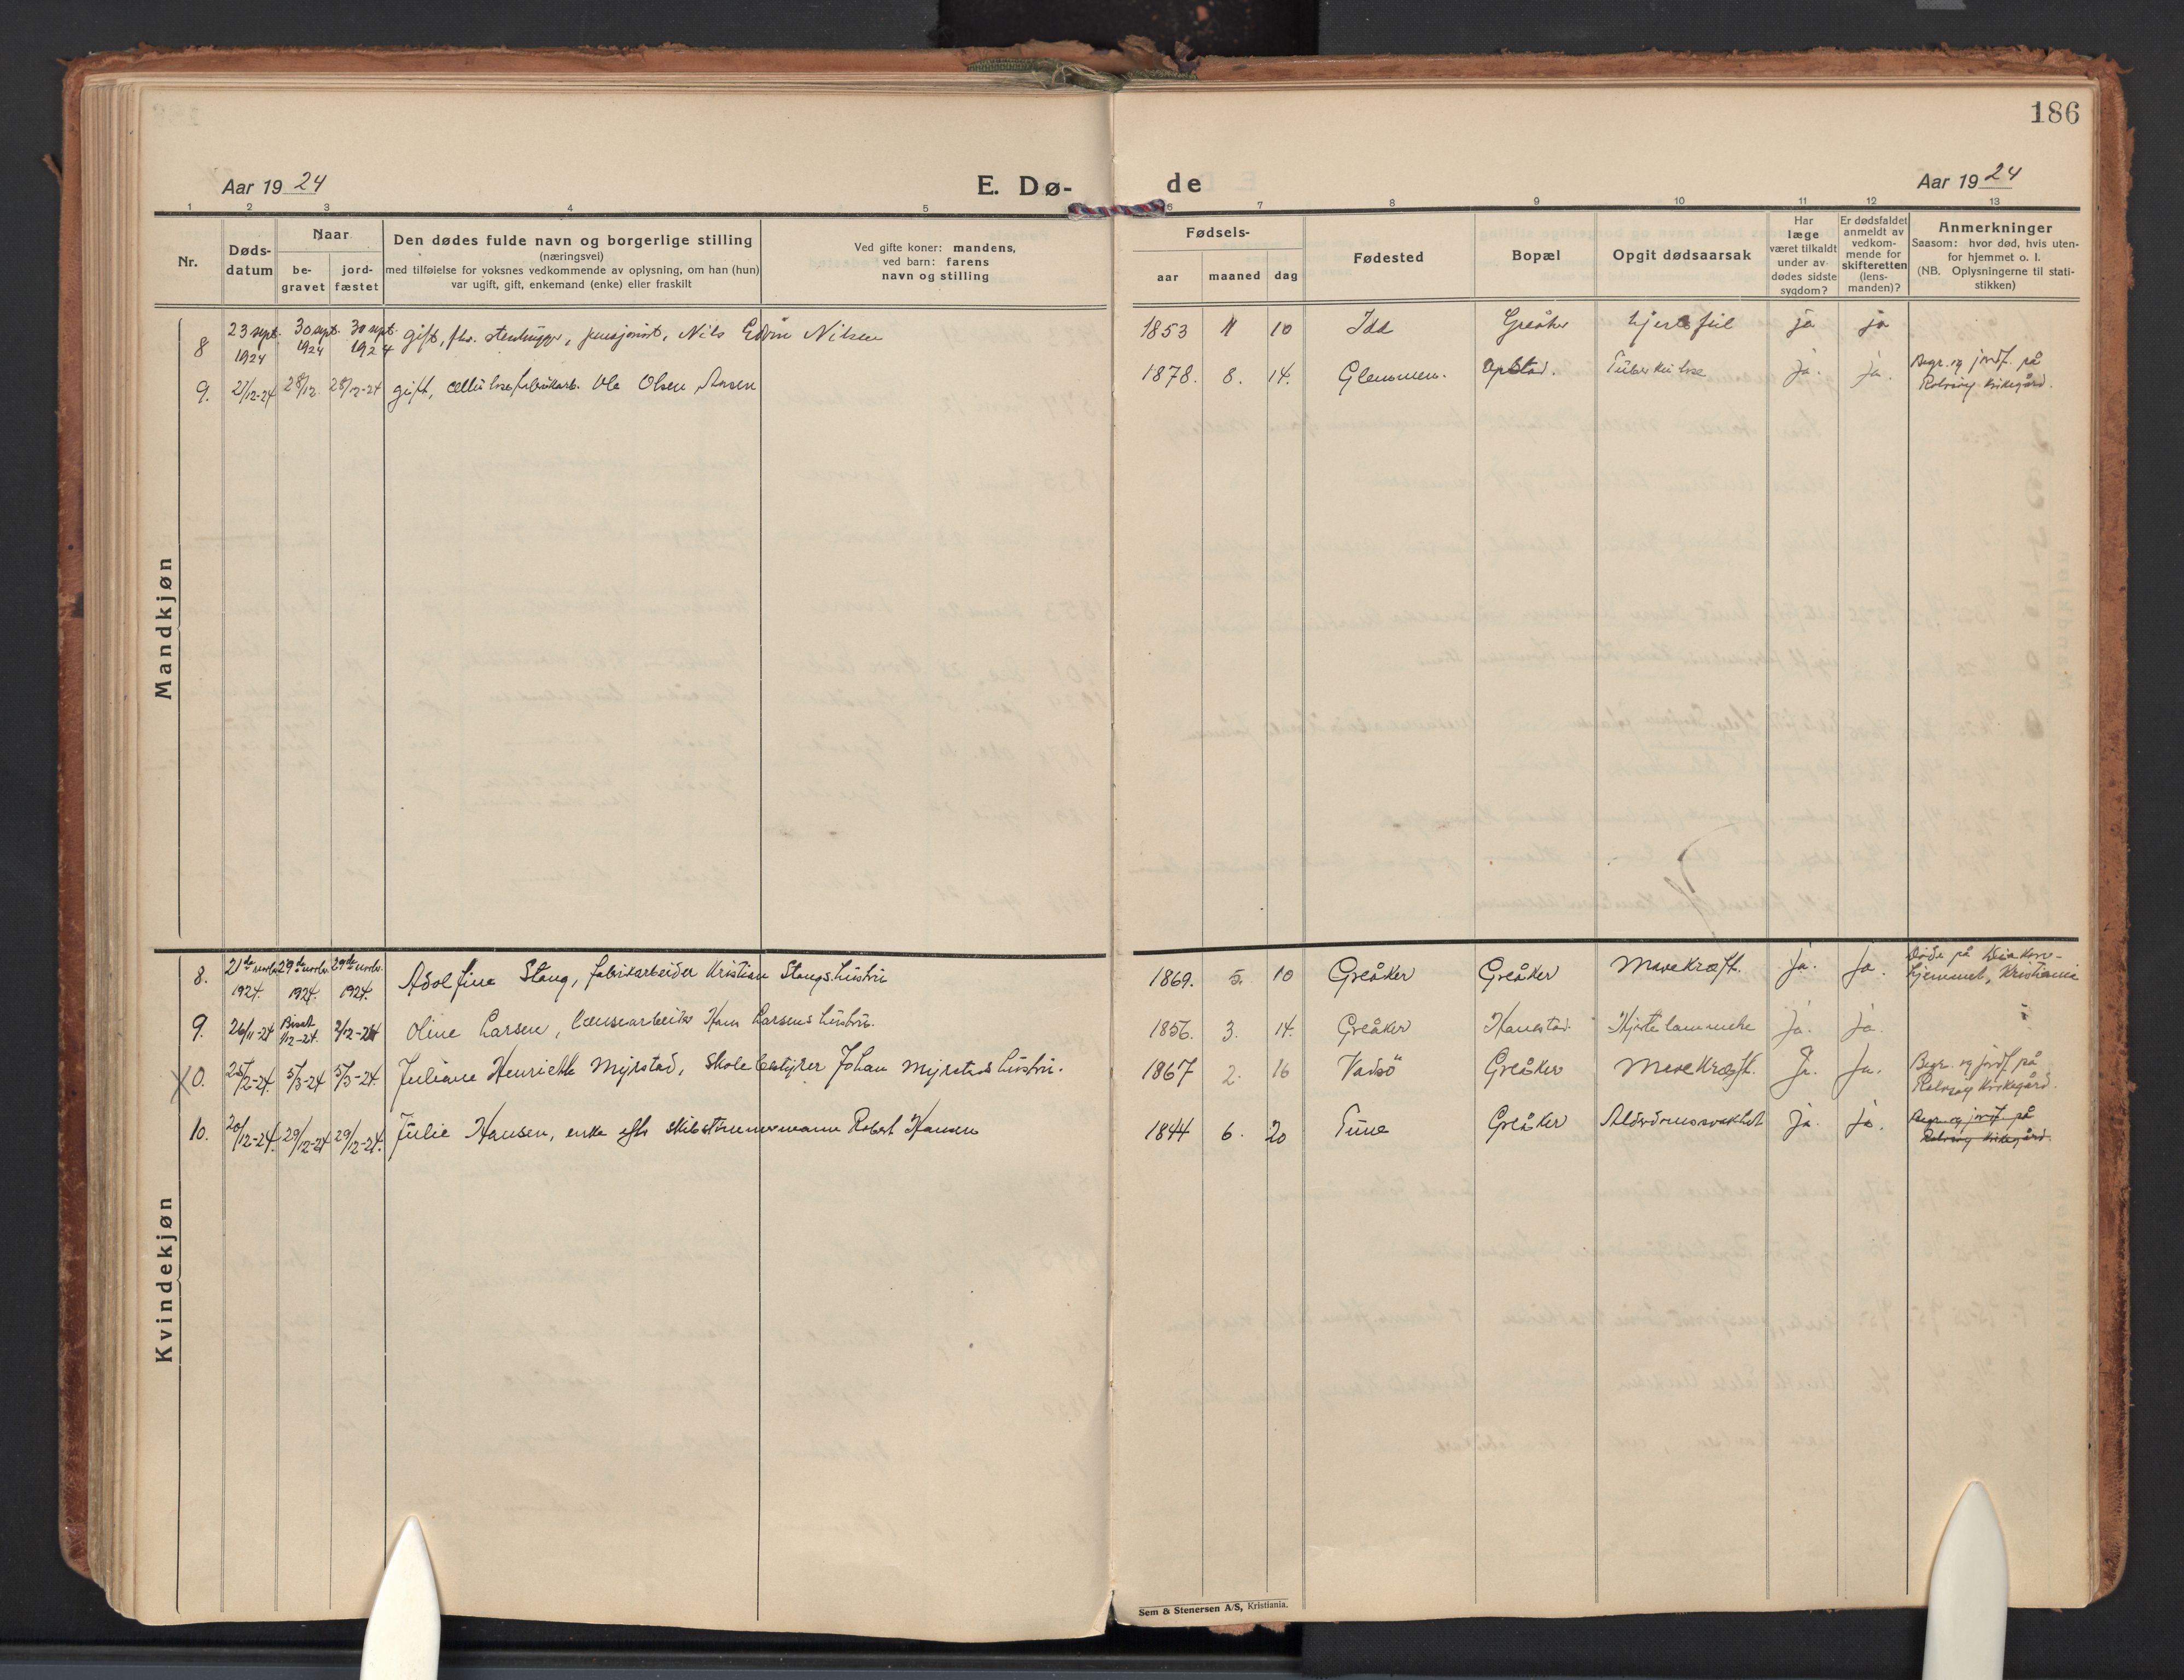 186
Aar 1924
E. Dø-
de
Aar 1924
1 2 3 4 5 6 7 8 9 10 11 12 13
Nr.
Døds-
datum
Naar
be-
gravet
jord-
fæstet
Den dødes fulde navn og borgerlige stilling
(næringsvei)
med tilføielse for voksnes vedkommende av oplysning, om han (hun)
var ugift, gift, enkemand (enke) eller fraskilt
Ved gifte koner: mandens,
ved barn: farens
navn og stilling
Fødsels-
aar maaned dag
Fødested
Bopæl
Opgit dødsaarsak
Har
læge
været tilkaldt
under av-
dødes sidste
sygdom?
Er dødsfaldet
anmeldt av
vedkom-
mende for
skifteretten
(lens-
manden)?
Anmerkninger
Saasom: hvor død, hvis uten-
for hjemmet o. l.
(NB. Oplysningerne til stati-
stikken)
Mandkjøn
8 23 sept. 1924 30 sept. 1924 30 sept. 1924 gift, fhv. stenhugger, pensjonist, Nils Edvin Nilsen 1853 11 10 Idd Greåker hjertefeil ja ja
9. 21/12-24 28/12. 28/12-24 gift, cellulosefabrikarb. Ole Olsen Aasen 1878. 8. 14. Glemmen. Opstad. Tuberkulose ja. ja. Begr. og jordf. på
Rolvsøy kirkegård.
Kvindekjøn
8. 21de novbr. 1924. 29de novbr. 1924. 29de novbr. 1924. Adolfine Stang, fabrikarbeider Kristian Stangs hustru 1869. 5. 10 Greåker Greåker Mavekræft. ja. ja. Døde på Diakon-
hjemmet, Kristiania
9. 26/11-24 Bisat 1/12-24. 2/12-24 Oline Larsen, lænsearbeider Hans Larsens hustru. 1856. 3. 14. Greåker Hanestad Hjertelammelse ja. ja.
X0. 25/2-24. 5/3-24 5/3-24. Juliane Henriette Myrstad, Skolebestyrer Johan Myrstads hustru. 1867 2. 16 Vadsö Greåker Mavekræft. Ja. Ja. Begr. og jordf. på
Rolvsøy kirkegård.
10. 20/12-24. 29/12-24 29/12-24. Julie Hansen, enke efter skibstømmermann Robert Hansen 1844 6. 20 Tune Greåker Alderdomssvakhet ja. ja. Begr. og jordf. på
Rolvsøy kirkegård.
Sem & Stenersen A/S, Kristiania.